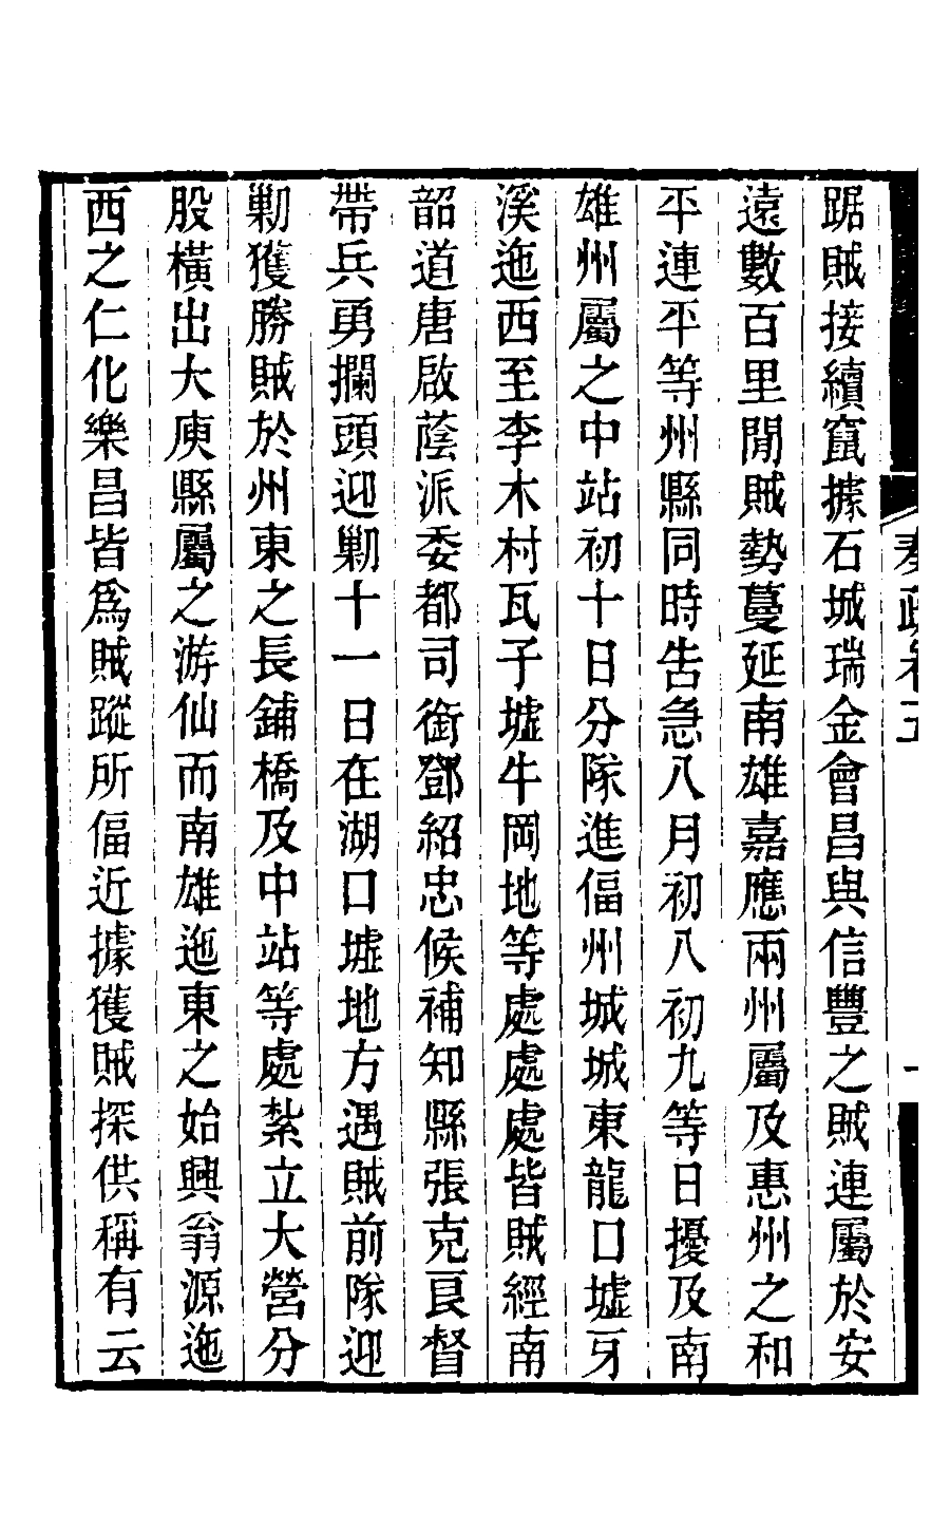 踞賊接續竄據石城瑞金會昌與信豐之賊連屬於安
遠數百里閒賊勢蔓延南雄嘉應兩州屬及惠州之和
平連平等州縣同時告急八月初八初九等日擾及南
雄州屬之中站初十日分隊進偪州城城東龍口墟牙
溪迤西至李木村瓦子墟牛岡地等處處處皆賊經南
韶道唐啟蔭派委都司銜鄧紹忠候補知縣張克良督
帶兵勇攔頭迎剿十一日在湖口墟地方遇賊前隊迎
剿獲勝賊於州東之長鋪橋及中站等處紮立大營分
股橫出大庾縣屬之游仙而南雄迤東之始興翁源迤
西之仁化樂昌皆爲賊蹤所偪近據獲賊探供稱有云